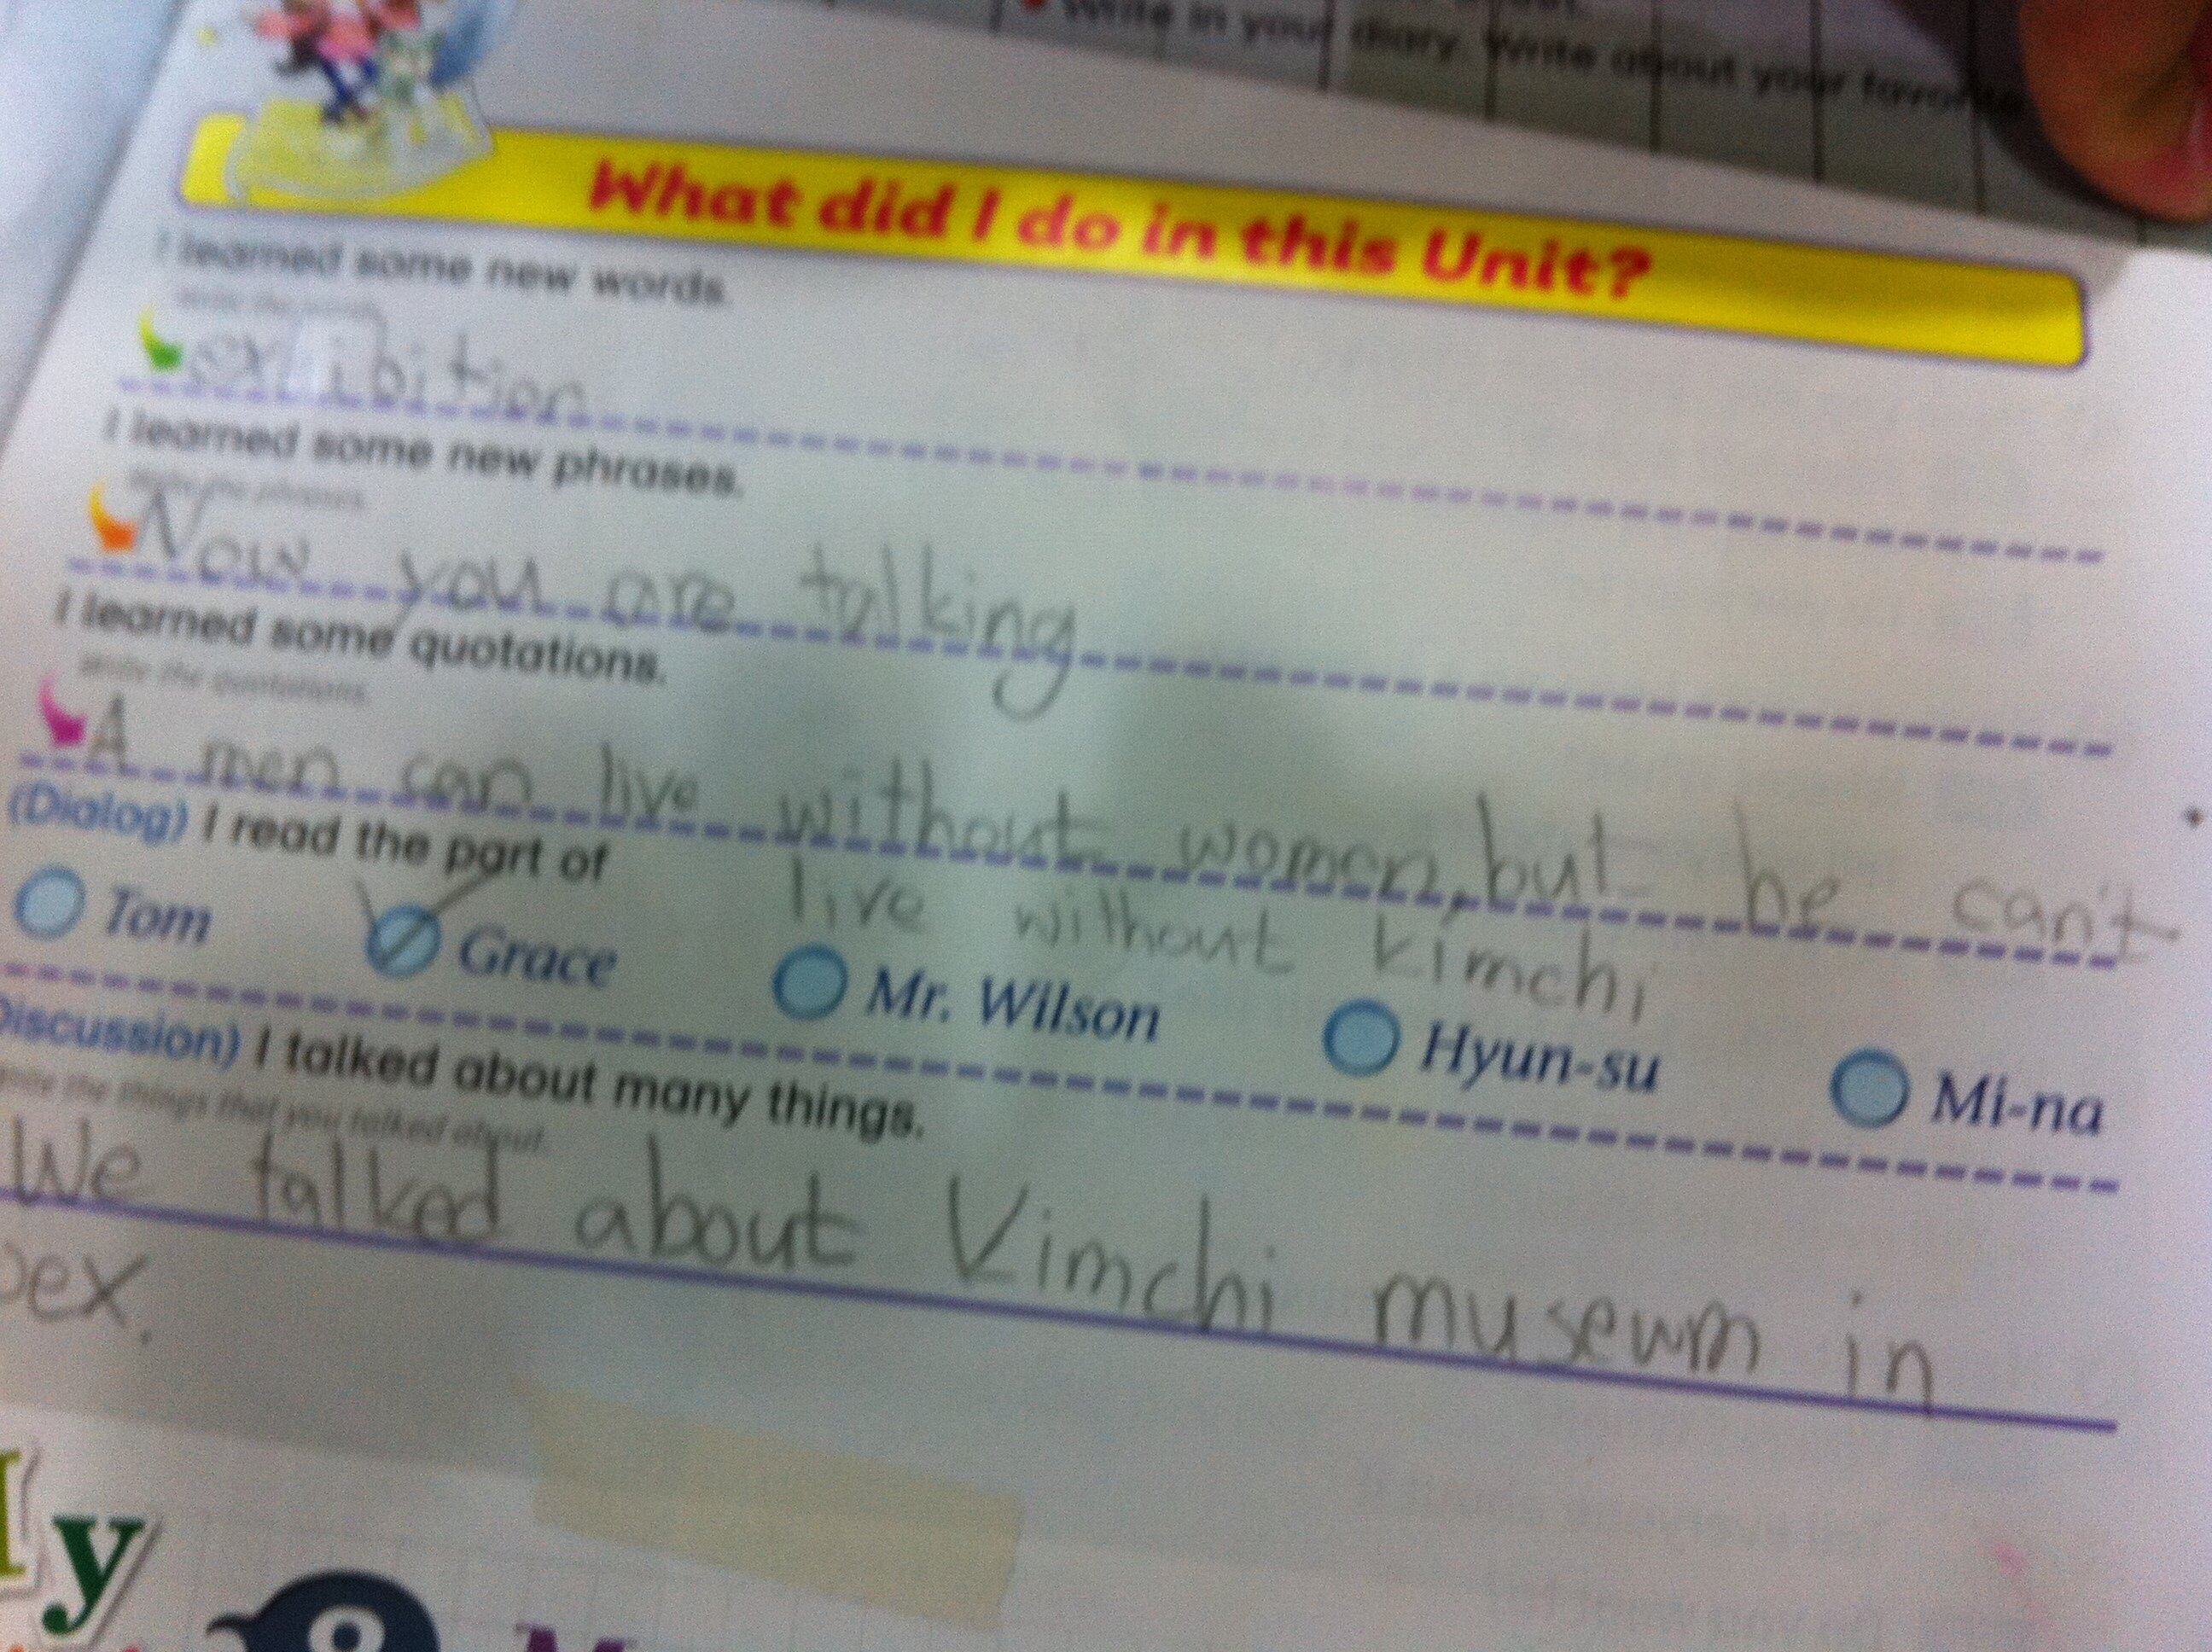 Write in your diary. Write about your favorite
What did I do in this Unit?
I learned some new words.
Write the words.
exhibition
I learned some new phrases.
Write the phrases.
Now you are talking
I learned some quotations.
Write the quotations.
A men can live without women, but he can't
live without kimchi
(Dialog) I read the part of
Tom Grace Mr. Wilson Hyun-su Mi-na
Discussion) I talked about many things.
Write the things that you talked about.
We talked about Kimchi museum in
oex.
y
8